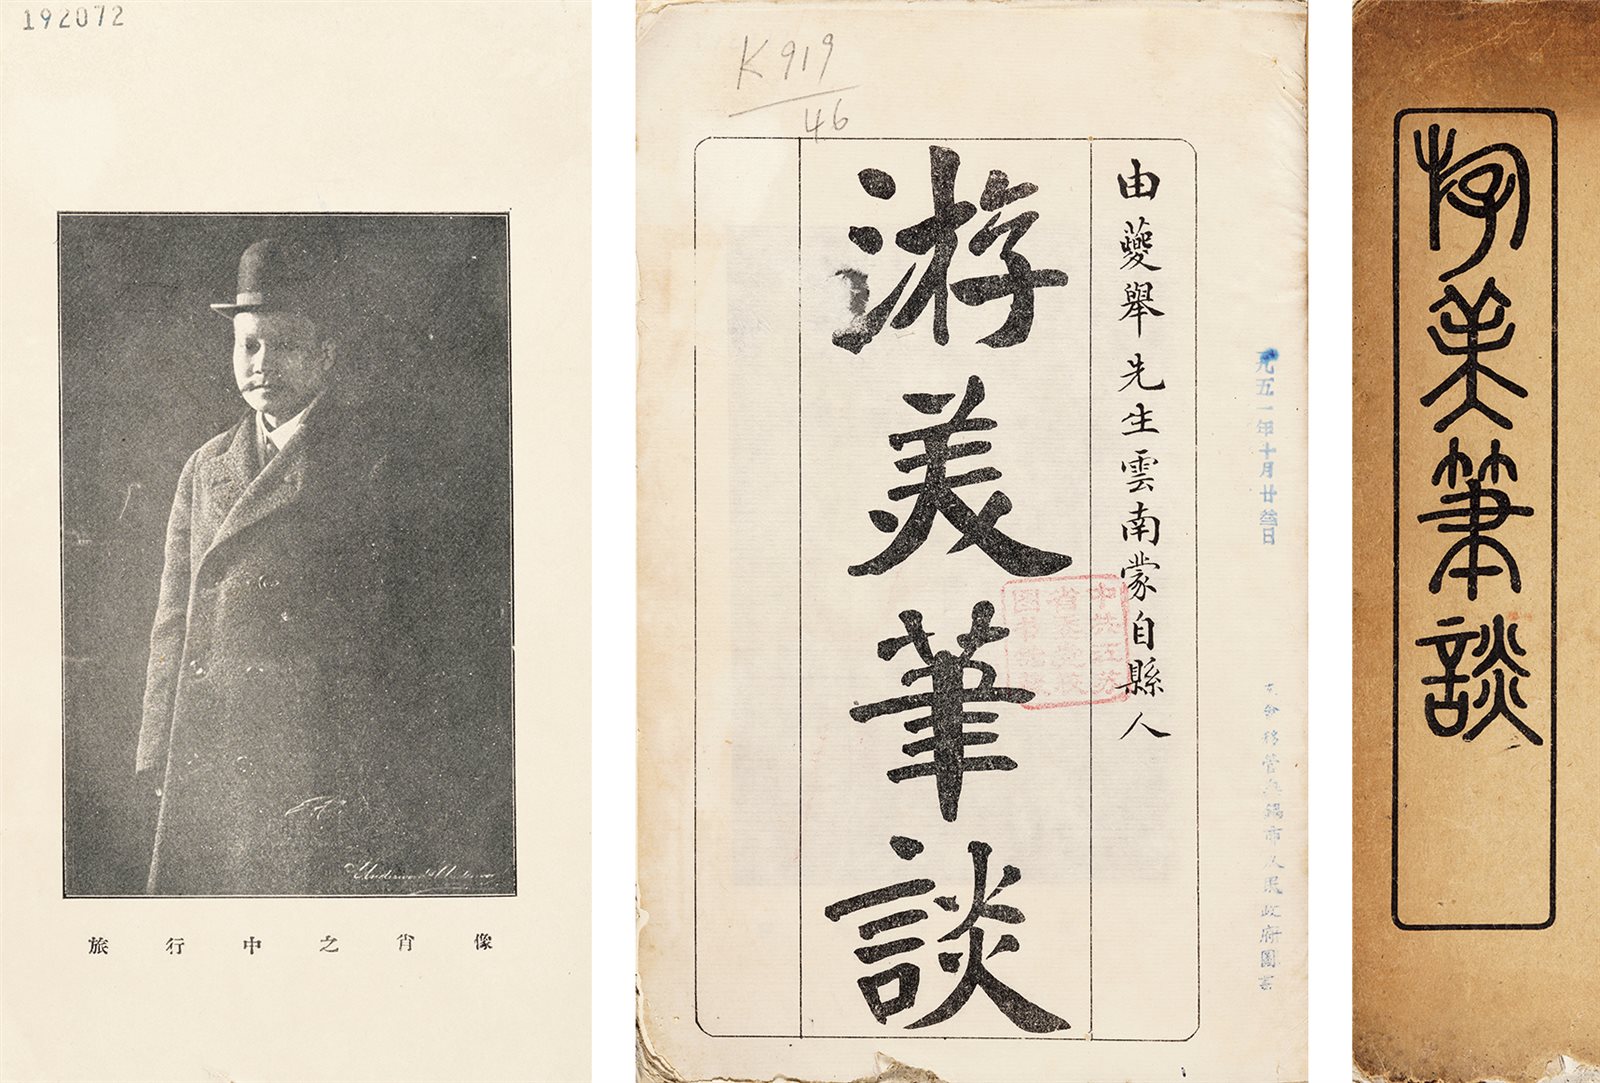 192072
Underwood & Underwood
旅行中之肖像
K919
46
由夔舉先生雲南蒙自縣人
游美筆談
九五一年十月廿叁日
移管無錫市人民政府圖
中共江苏
省委党校
游美筆談